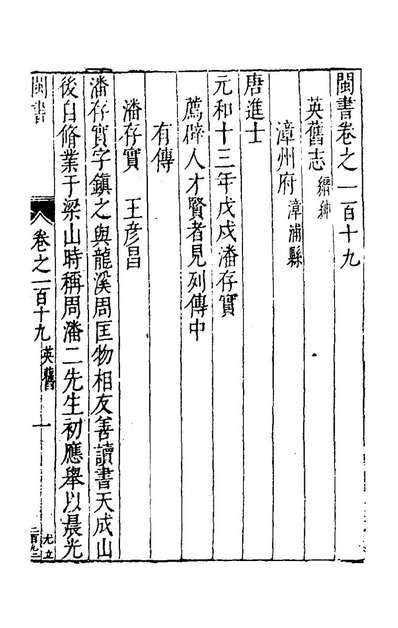 閩書卷之一百十九
英舊志 縉紳
漳州府 漳浦縣
唐進士
元和十三年戊戌潘存實
薦辟人才賢者見列傳中
有傳
潘存實 王彦昌
潘存實字鎮之與龍溪周匡物相友善讀書天成山
後自脩業于梁山時稱周潘二先生初應舉以晨光
閩書 卷之一百十九 英舊 一